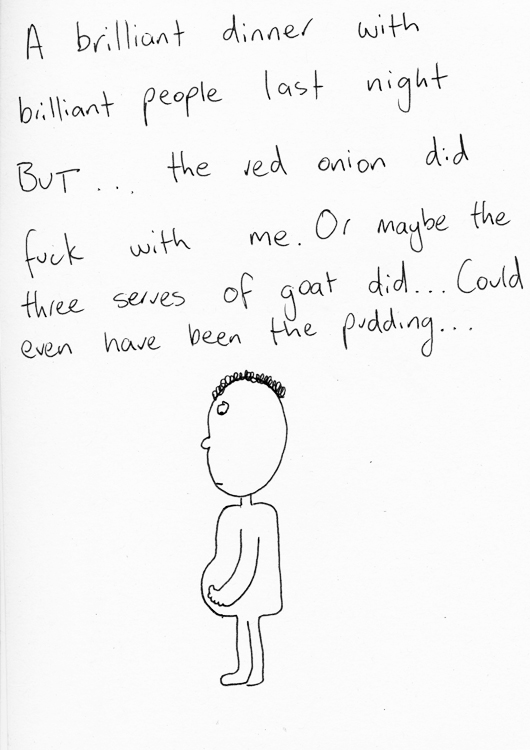 A brilliant dinner with
brilliant people last night
BUT... the red onion did
fuck with me. Or maybe the
three serves of goat did... Could
even have been the pudding...